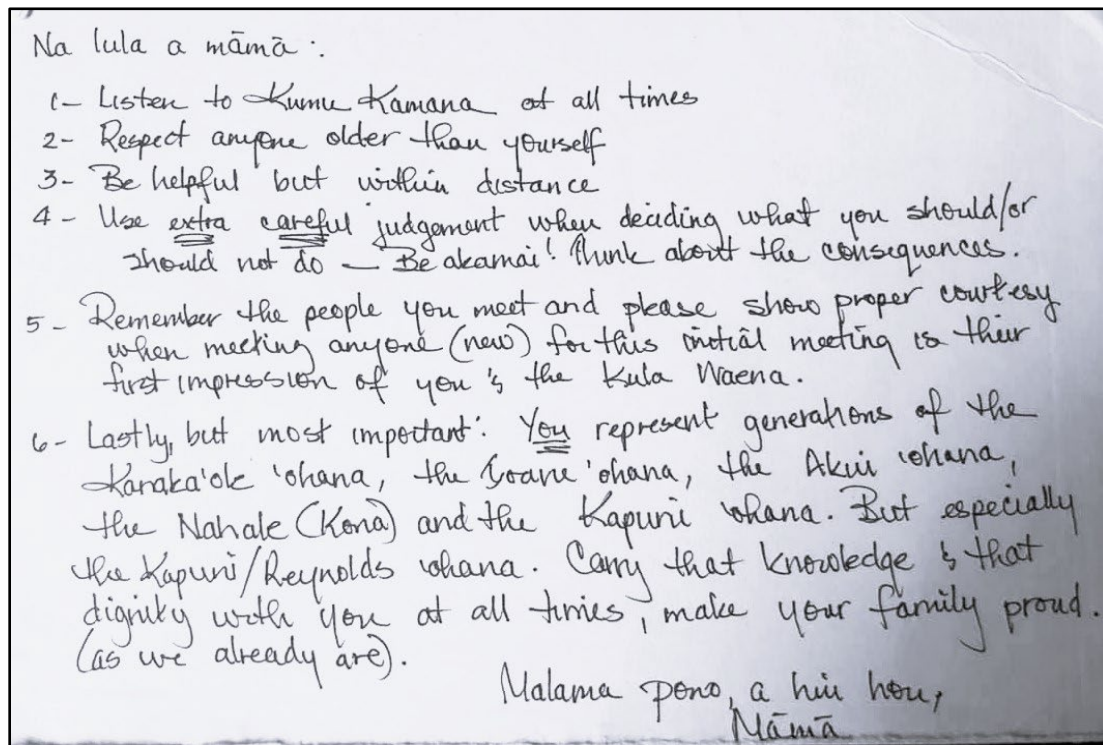 Na lula a māmā :
1- Listen to Kumu Kamana at all times
2- Respect anyone older than yourself
3- Be helpful but within distance
4- Use extra careful judgement when deciding what you should/or
should not do — Be akamai! Think about the consequences.
5- Remember the people you meet and please show proper courtesy
when meeting anyone (new) for this initial meeting is their
first impression of you & the Kula Waena.
6- Lastly, but most important: You represent generations of the
Kanaka'ole 'ohana, the 'ohana, the Akui 'ohana,
the Nahale (Kona) and the Kapuni 'ohana. But especially
the Kapuni/Reynolds 'ohana. Carry that knowledge & that
dignity with you at all times, make your family proud.
(as we already are).
Malama pono, a hui hou,
Māmā